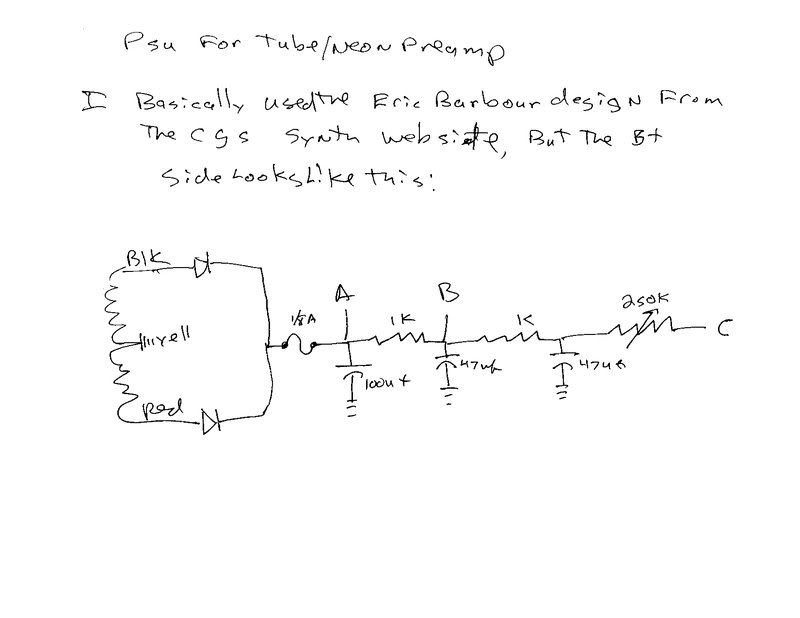 Psu For Tube/Neon Preamp
I Basically used the Eric Barbour design From
The CGS Synth website, But The B+
side Looks Like this:
Blk
A
B
250K
1/8A
1K
1K
C
yell
100uf
47uf
47uf
Red